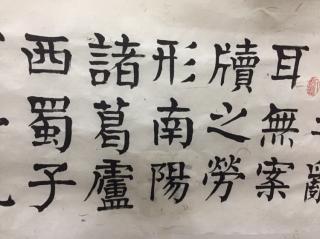 亂
耳無案
牘之勞
形南陽
諸葛廬
西蜀子